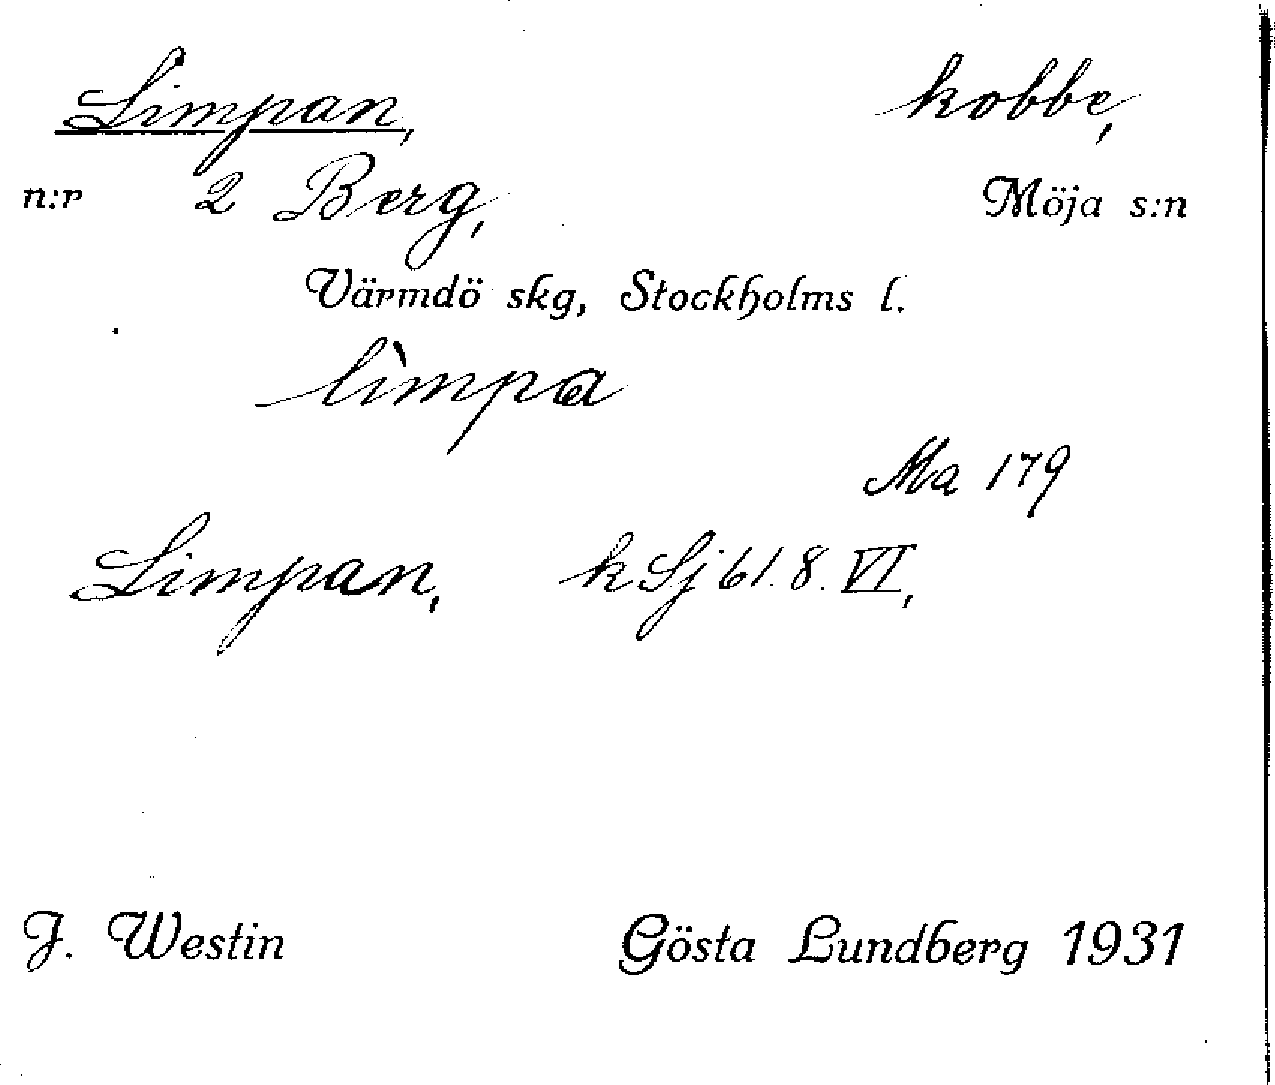 Limpan, kobbe,
n:r 2 Berg, Möja s:n
Värmdö skg, Stockholms l.
lìmpa
Ma 179
Limpan, k Sj 61. 8. VI,
J. Westin Gösta Lundberg 1931